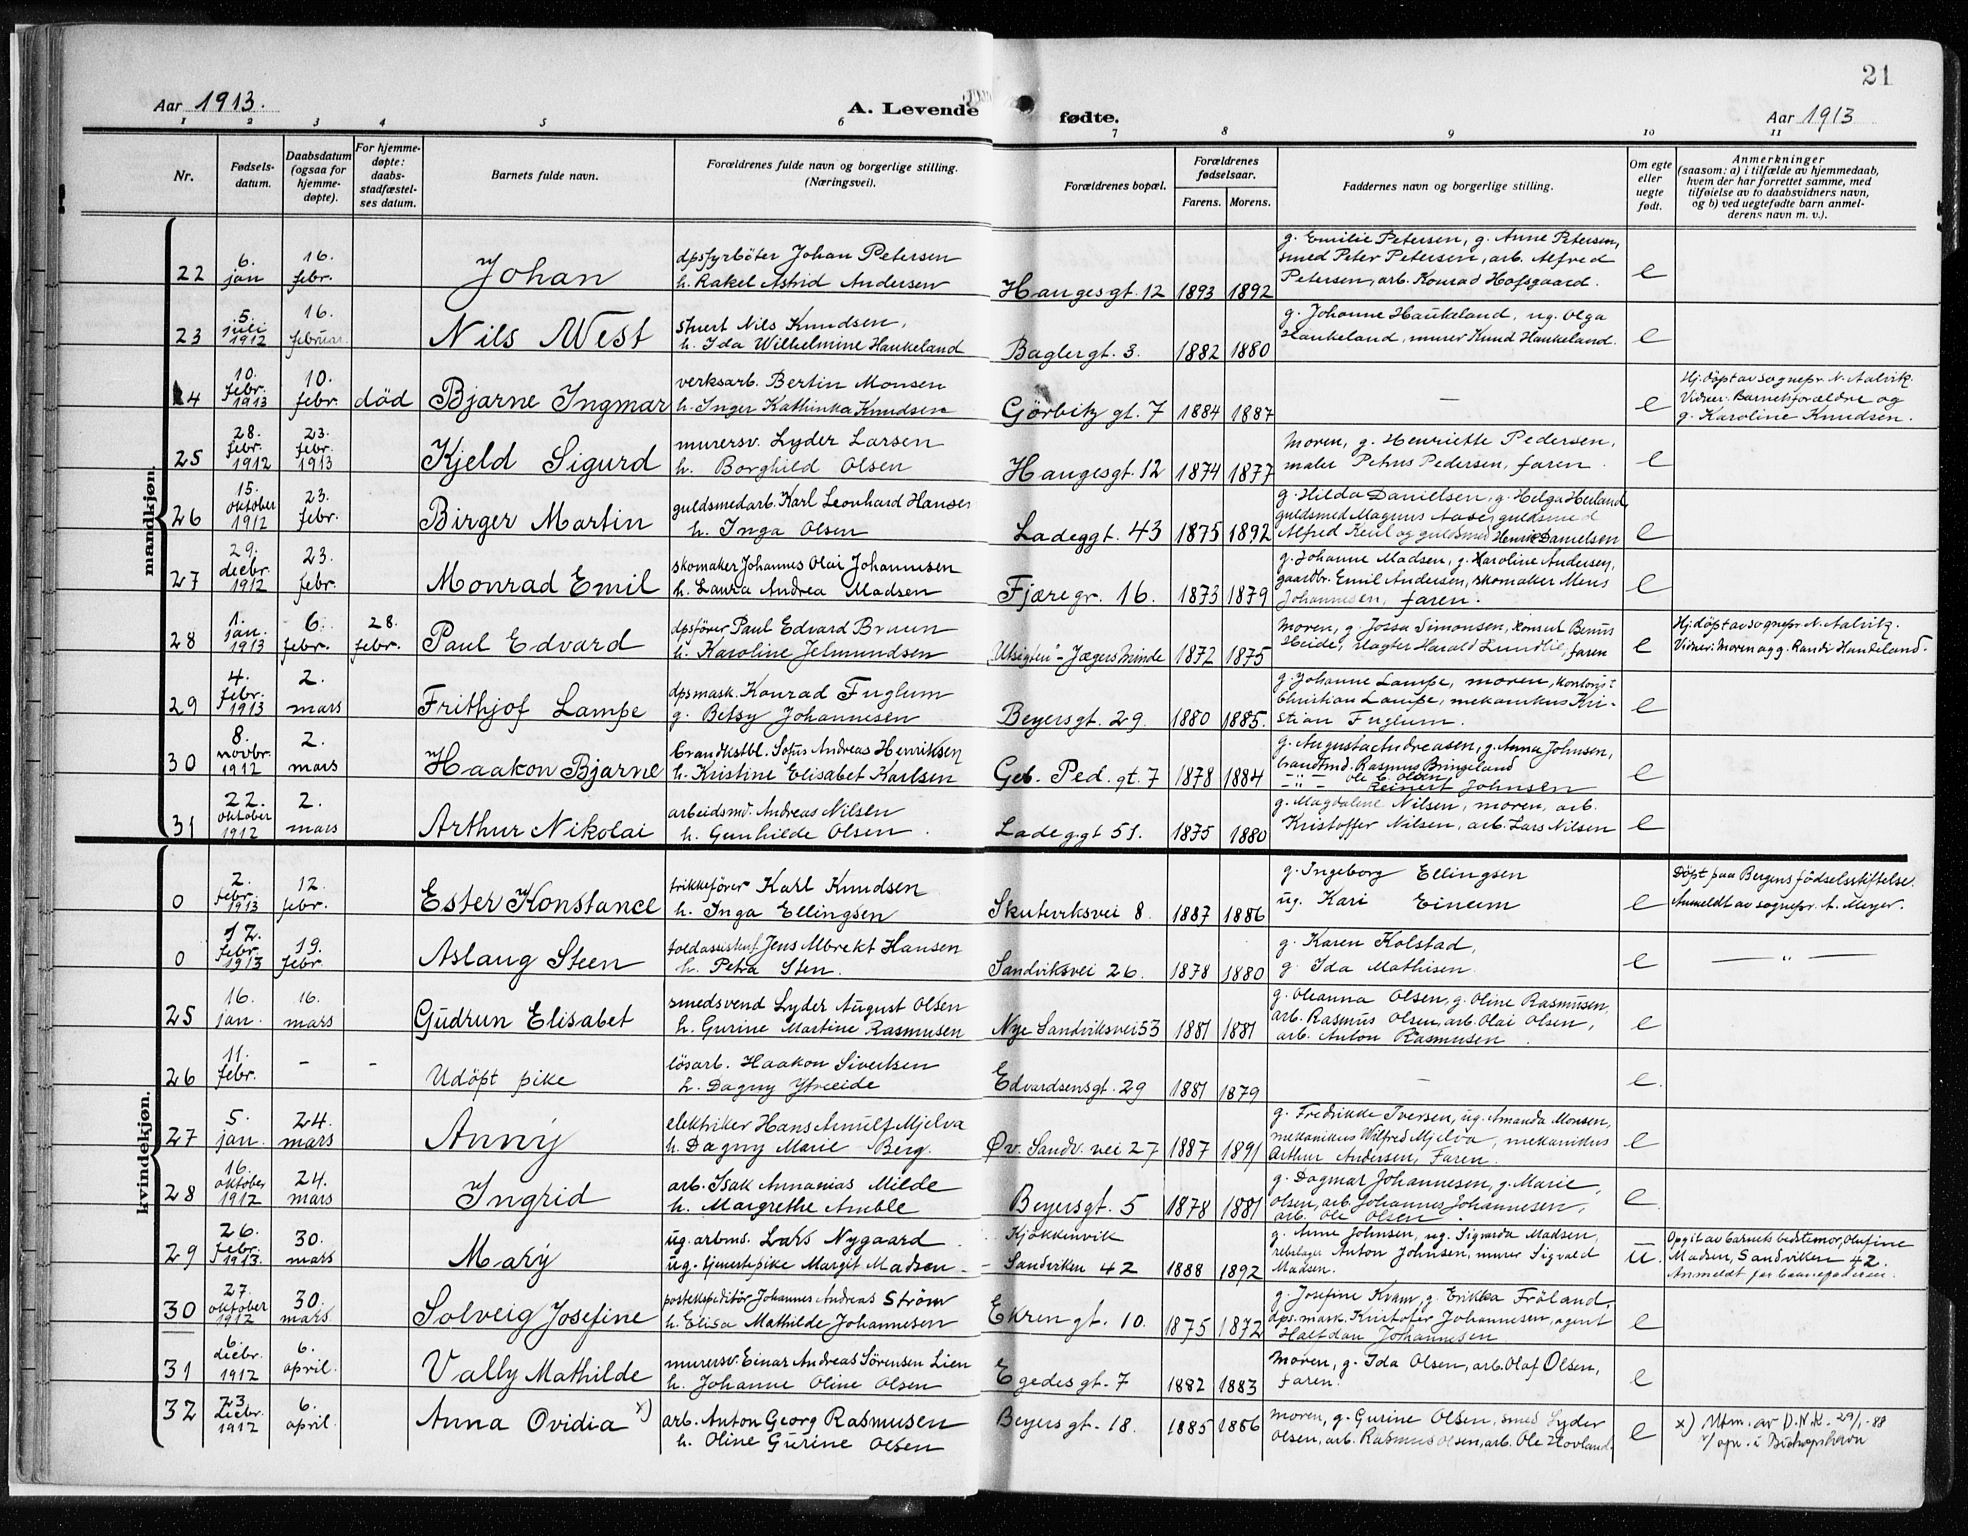 21
Aar 1913.
A. Levende fødte.
Aar 1913
1 2 3 4 5 6 7 8 9 10 11
Nr.
Fødsels-
datum.
Daabsdatum
(ogsaa for
hjemme-
døpte).
For hjemme-
døpte:
daabs-
stadfæstel-
ses datum.
Barnets fulde navn.
Forældrenes fulde navn og borgerlige stilling.
(Næringsvei).
Forældrenes bopæl.
Forældrenes
fødselsaar.
Farens. Morens.
Faddernes navn og borgerlige stilling.
Om egte
eller
uegte
født.
Anmerkninger
(saasom: a) i tilfælde av hjemmedaab,
hvem der har forrettet samme, med
tilføielse av to daabsvidners navn,
og b) ved uegtefødte barn anmel-
derens navn m. v.).
mandkjøn.
22
6.
jan
16.
febr.
Johan
dpsfyrböter Johan Petersen
h. Rakel Astrid Andersen
Hangesgt. 12
1893 1892
g. Emilie Petersen, g. Anne Petersen,
smed Peter Petersen, arb. Alfred
Petersen, arb. Konrad Hofsgaard.
e
23
5.
juli
1912
16.
februar.
Nils West
stuert Nils Knudsen,
h. Ida Wilhelmine Haukeland
Baglergt. 3.
1882 1880
g. Johanne Haukeland, ug. Olga
Haukeland, murer Knud Haukeland.
e
24
10.
febr.
1913
10.
febr.
död
Bjarne Ingmar
verksarb. Bertin Monsen
h. Inger Kathinka Knudsen
Görbitz gt. 7
1884 1887
–
e
Hj. döpt av sognepr. N. Aalvik.
Vidner: Barnets forældre og
g. Karoline Knudsen.
25
28.
febr.
1912
23.
febr.
1913
Kjeld Sigurd
murersv. Lyder Larsen
h. Borghild Olsen
Hangesgt. 12
1874 1877
moren, g. Henriette Pedersen,
maler Petrus Pedersen, faren.
e
26
15.
oktober
1912
23.
febr.
Birger Martin
guldsmedarb. Karl Leonhard Hansen
h. Inga Olsen
Ladeggt. 43
1875 1892
g. Hilda Danielsen, g. Helga Herland
guldsmed Magnus Aase, guldsmed
Alfred Keul og guldsmed Henrik Danielsen
e
27
29.
decbr.
1912
23.
febr.
Monrad Emil
skomaker Johannes Olai Johannesen
h. Laura Andrea Madsen
Fjæregr. 16.
1873 1879
g. Johanne Madsen, g. Karoline Andersen,
gaardbr. Emil Andersen, skomaker Mens
Johannesen, faren.
e
28
1.
jan.
1913
6.
febr.
28.
febr.
Paul Edvard
dpsfører Paul Edvard Bruun
h. Karoline Jelmundsen
"Utsigten" - Jægers Minde
1872 1875
moren, g. Jossa Simonsen, konsul Benus
Heide, Harald Lundlie, faren
e
Hj. döpt av sognepr. N. Aalvik.
Vidner: moren og g. Randi Haukeland.
29
4.
febr.
1913
2.
mars
Frithjof Lampe
dpsmask. Konrad Fuglum
g. Betsy Johannesen
Beyersgt. 29.
1880 1885.
g. Johanne Lampe, moren, kontorist
Christian Lampe, mekanikus Kri-
stian Fuglum.
e
30
8.
novbr.
1912
2.
mars
Haakon Bjarne
brandkstbl. Sofus Andreas Henriksen
h. Kristine Elisabet Karlsen
Geb. Ped. gt. 7
1878 1884
g. Augusta Andreasen, g. Anna Johnsen,
brandmd. Rasmus Bringeland
–"– Ole C. Olsen
–"– Reinert Johnsen
e
31
22.
oktober
1912
2.
mars
Arthur Nikolai
arbeidsmd. Andreas Nilsen
h. Gunhilde Olsen.
Ladeg.gt 51.
1875 1880
g. Magdaline Nilsen, moren, arb.
Kristoffer Nilsen, arb. Lars Nilsen
e
kvindekjøn.
0
2.
febr.
1913
12.
febr.
Ester Konstance
trikkefører Karl Knudsen
h. Inga Ellingsen
Skuteviksvei 8.
1887 1886
g. Ingeborg Ellingsen
ug. Kari Einem
e
Döpt paa Bergens födselsstiftelse.
Anmeldt av sognepr. A. Meyer.
0
12.
febr.
1913
19.
febr.
Aslaug Steen
toldassistent Jens Albrekt Hansen
h. Petra Sten.
Sandviksvei 26.
1878 1880
g. Karen Kolstad,
g. Ida Mathisen.
e
— " —
25
16.
jan.
16.
mars
Gudrun Elisabet
smedsvend Lyder August Olsen
h. Gurine Martine Rasmusen
Nye Sandviksvei 53
1881 1881
g. Oleanna Olsen, g. Oline Rasmusen,
arb. Rasmus Olsen, arb. Olai Olsen,
arb. Anton Rasmusen.
e
26
11.
febr.
– –
Udöpt pike
løsarb. Haakon Sivertsen
h. Dagny Ytreeide
Edvardsensgt. 29
1881 1879
–
e.
27
5.
jan.
24.
mars
Anny
elektriker Hans Arnulf Mjelva
h. Dagny Marie Berg.
Øv. Sandv. vei 27
1887 1891
g. Fredrikke Iversen, ug. Amanda Monsen,
mekanikus Wilfred Mjelva, mekanikus
Arthur Andersen, Faren.
e
28
16.
oktober
1912
24.
mars
Ingrid
arb. Isak Annanias Milde
h. Margrethe Amble
Beyersgt. 5
1878 1881
g. Dagmar Johannesen, g. Marie
Olsen, arb. Johannes Johannesen,
arb. Ole Olsen.
e
29
26.
febr.
1913.
30.
mars
Mary
ug. arbmd. Lars Nygaard
ug. tjenestepike Margit Madsen –
Kjökkenvik
– Sandviken 42
1888 1892
g. Anne Johnsen, ug. Sigvarda Madsen,
rebslager Anton Johnsen, murer Sigvald
Madsen.
u.
Opgit av barnets bedstemor, Olufine
Madsen, Sandviken 42.
Anmeldt for barnefaderen.
30
27.
oktober
1912
30.
mars.
Solveig Josefine
postekspeditör Johannes Andreas Ström
h. Elisa Mathilde Johannesen
Ekrengt. 10.
1875 1872
g. Josefine Kvam, g. Erikka Fröland,
dps. mask. Kristofer Johannesen, agent
Halfdan Johannesen
e
31
6.
decbr.
1912
6.
april.
Vally Mathilde
murersv. Einar Andreas Sörensen Lien
h. Johanne Oline Olsen
Egedesgt. 7
1882 1883
moren, g. Ida Olsen, arb. Olaf Olsen,
faren.
e
32
23.
decbr.
1912
6.
april.
Anna Ovidia x)
arb. Anton Georg Rasmusen
h. Oline Gurine Olsen
Beyersgt. 18.
1885 1886
moren, g. Gurine Olsen, smed Lyder
Olsen, arb. Rasmus Olsen, arb. Ole Hovland.
e
x) Utm. av D.N.K. 29/1-88
v/ opn. i Biskopshavn